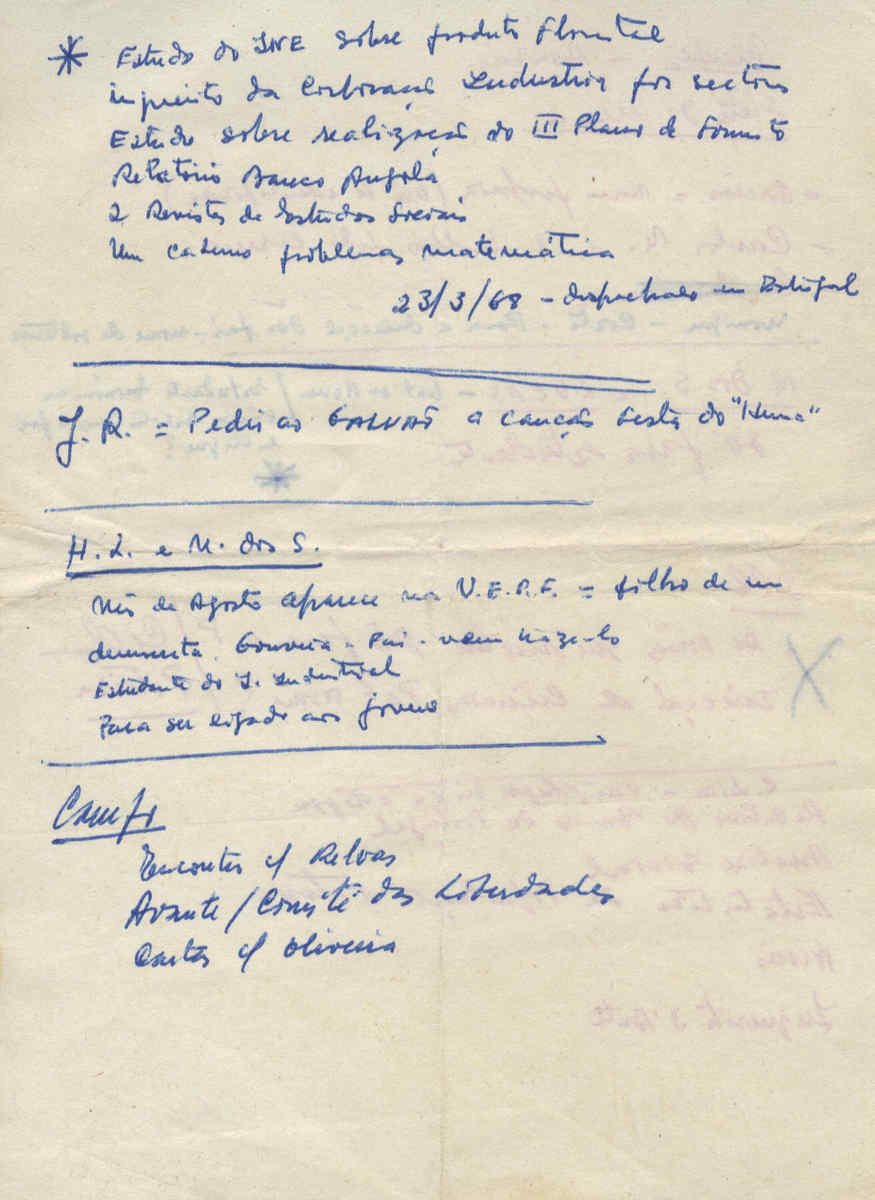 * Estudo do INE sobre produto florestal
inquérito da Corporação Industria por sectores
Estudo sobre realização do III Plano de Fomento
Relatório Banco Angola
2 Revistas de Estudos Sociais
Um caderno problemas matemática
23/3/68 - despachado em Portugal
J. R. = Pedir ao GALVÃO a canção festa do "Huma"
*
H. L. e M. dos S.
Mês de Agosto aparece na U.E.P.F. = filho de um
Gouveia - Pai - vem trazê-lo
Estudante do I. Industrial
Para ser ligado aos jovens
Campo
Encontro c/ Relvas
Avante / Comité das Liberdades
Cartas c/ Oliveira